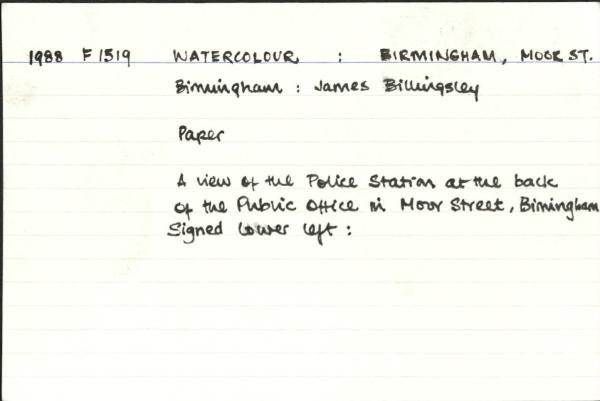 1988 F1519 WATERCOLOUR : BIRMINGHAM, MOOR ST.
Birmingham : James Billingsley
Paper
A view of the Police Station at the back
of the Public Office in Moor Street, Birmingham
Signed lower left :